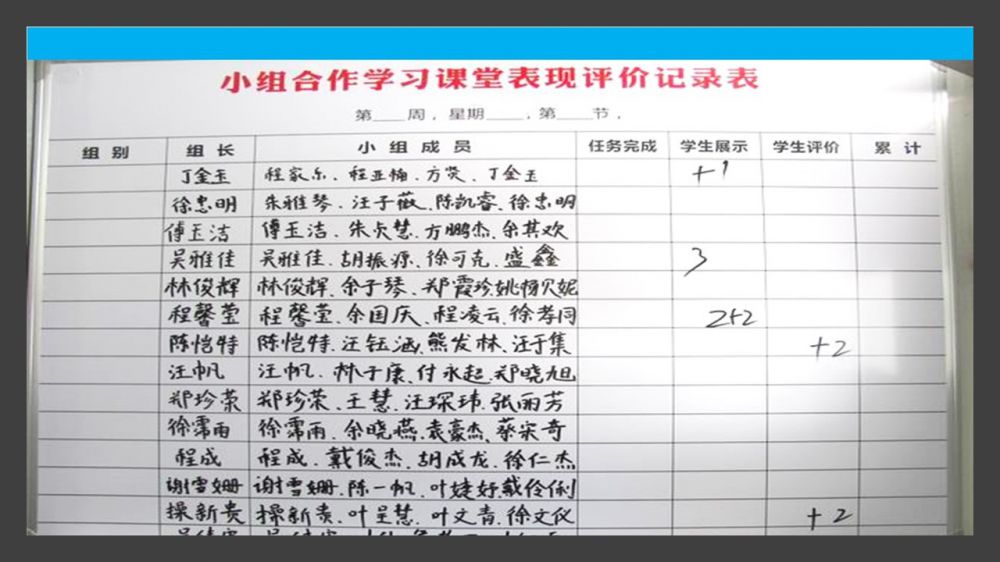 小组合作学习课堂表现评价记录表
第____周，星期____，第____节，
组别 组长 小组成员 任务完成 学生展示 学生评价 累计
丁金玉 程家乐、程亚楠、方茨、丁金玉 +1
徐忠明 朱雅琴、汪子薇、陈凯睿、徐忠明
傅玉洁 傅玉洁、朱贞慧、方鹏杰、余其欢
吴雅佳 吴雅佳、胡振源、徐可克、盛鑫 3
林俊辉 林俊辉、余子琴、郑霞珍、姚
程馨莹 程馨莹、余国庆、程凌云、徐孝同 2+2
陈恺特 陈恺特、汪钰涵、熊发林、汪于集 +2
汪帆 汪帆、林子康、付永起、郑晓旭
郑珍荣 郑珍荣、王慧、汪琛玮、张丽芳
徐霈雨 徐霈雨、余晓燕、袁豪杰、蔡宋奇
程成 程成、戴俊杰、胡成龙、徐仁杰
谢雪姗 谢雪姗、陈一帆、叶婕妤、戴伶俐
操新贵 操新贵、叶呈慧、叶文青、徐文仪 +2